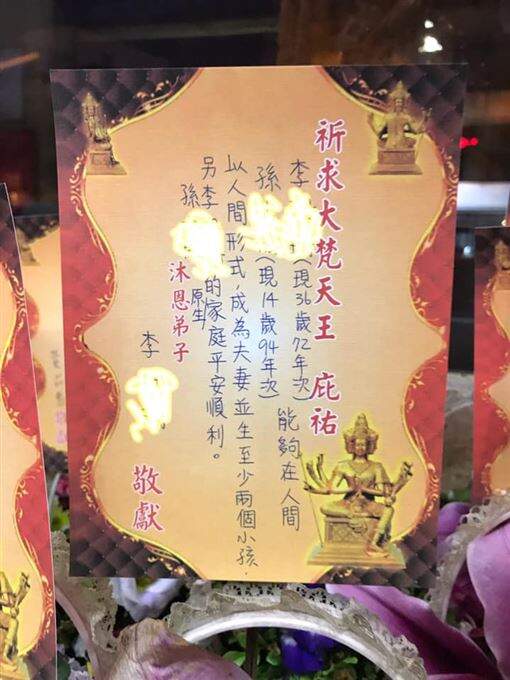 祈求大梵天王 庇祐
李（現36歲72年次）能夠在人間
孫（現14歲94年次）
以人間形式，成為夫妻並生至少兩個小孩，
另李 的家庭平安順利。
孫 原生
沐恩弟子
李 。
敬獻